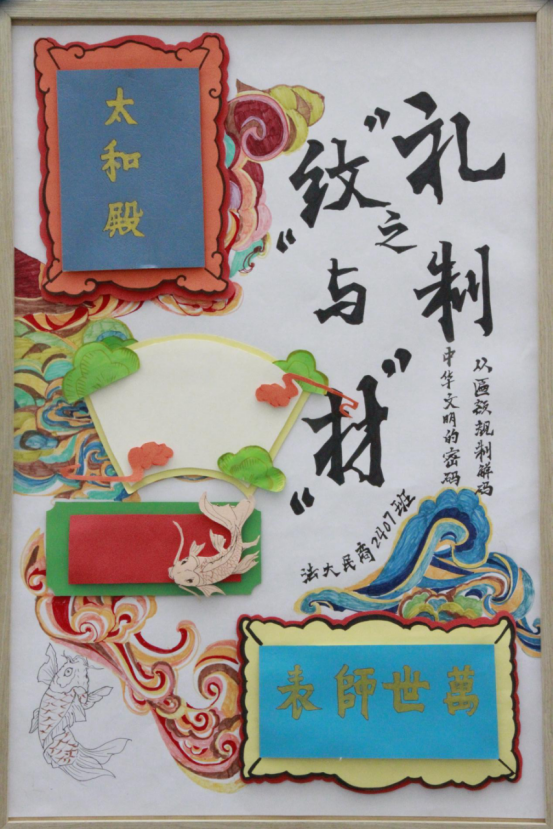 太和殿
礼制
之
“纹”与“材”
从匾额规制解码
中华文明的密码
法大民商2407班
萬世師表